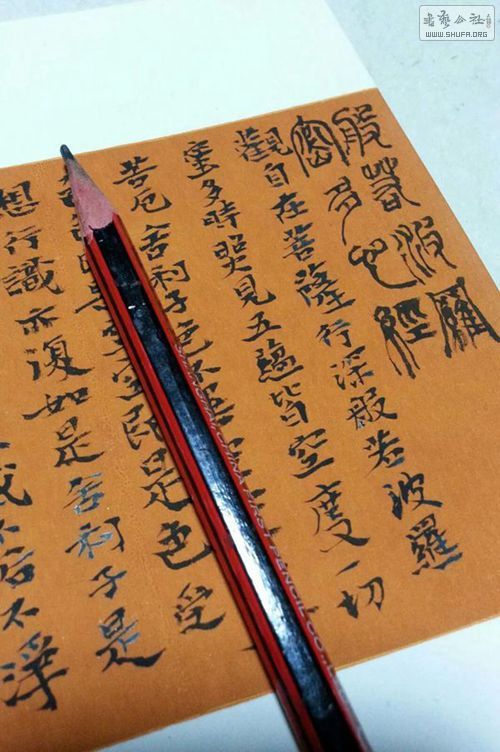 般若波羅
密多心經
觀自在菩薩行深般若波羅
蜜多時照見五蘊皆空度一切
苦厄舍利子色不
空即是色受
想行識亦復如是舍利子是
不垢不淨
CHINA FIRST PENCIL CO.
书艺公社
WWW.SHUFA.ORG